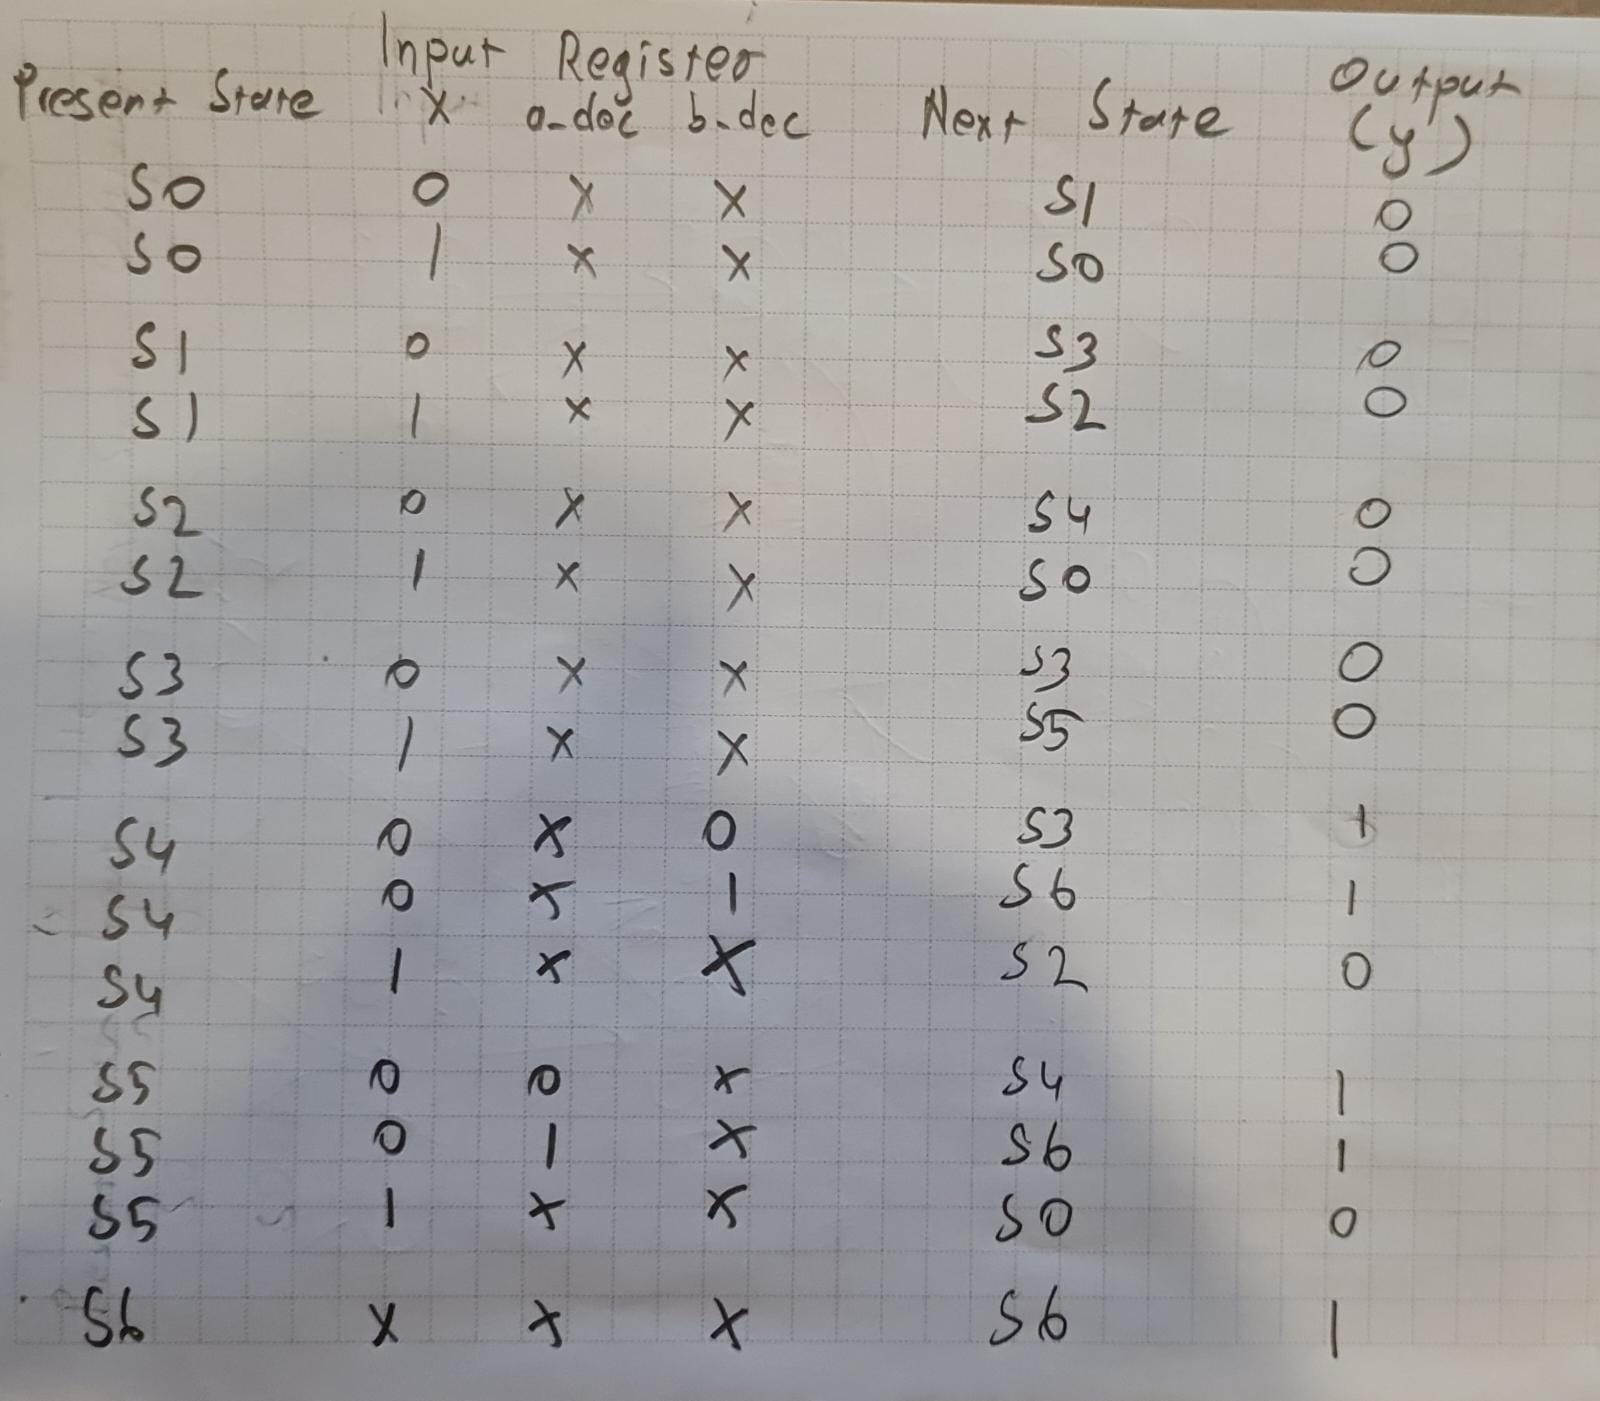 Input Register Output
Present State X a_dec b_dec Next State (y)
S0 0 X X S1 0
S0 1 X X S0 0
S1 0 X X S3 0
S1 1 X X S2 0
S2 0 X X S4 0
S2 1 X X S0 0
S3 0 X X S3 0
S3 1 X X S5 0
S4 0 X 0 S3 1
S4 0 X 1 S6 1
S4 1 X X S2 0
S5 0 0 X S4 1
S5 0 1 X S6 1
S5 1 X X S0 0
S6 X X X S6 1